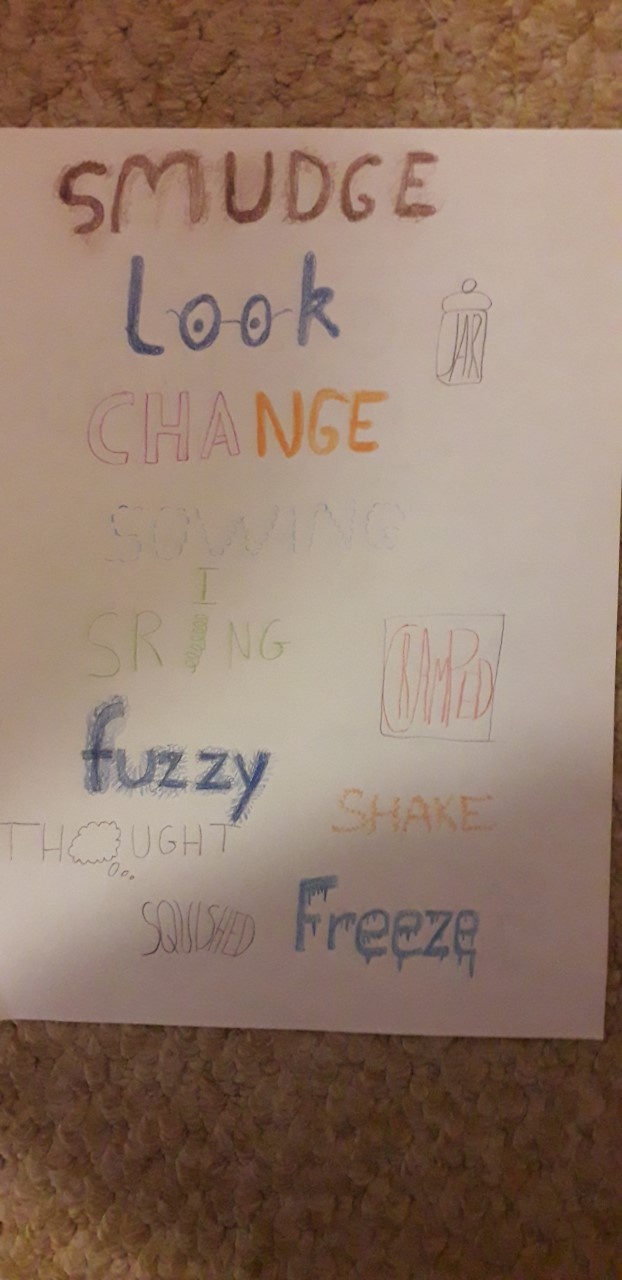 SMUDGE
look
JAR
CHANGE
SOWING
SRING
CRAMPED
fuzzy
SHAKE
THOUGHT
SQUISHED
Freeze